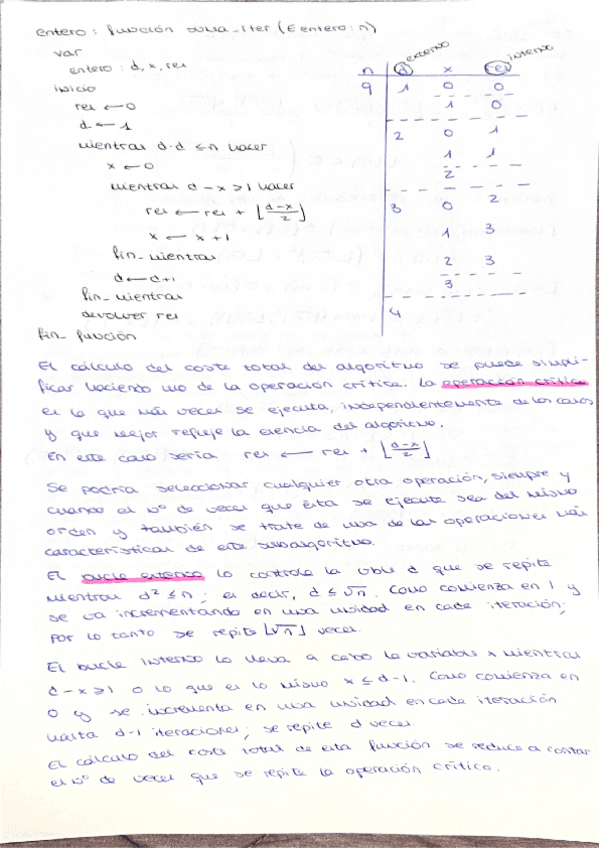 entero : función suma_iter (E entero: n)
var
entero : d, x, res
inicio
res ← 0
d ← 1
mientras d·d ≤ n hacer
x ← 0
mientras d - x ≥ 1 hacer
res ← res + ⌊(d-x)/2⌋
x ← x + 1
fin_mientras
d ← d+1
fin_mientras
devolver res
fin_función
externo interno
n d x res
9 1 0 0
1 0
2 0 1
1 1
2
3 0 2
1 3
2 3
3
4
El cálculo del coste total del algoritmo se puede simpli-
ficar haciendo uso de la operación crítica. La operación crítica
es la que más veces se ejecuta, independientemente de los casos
y que mejor refleje la esencia del algoritmo.
En este caso sería res ← res + ⌊(d-x)/2⌋
Se podría seleccionar cualquier otra operación, siempre y
cuando el nº de veces que ésta se ejecute sea del mismo
orden y también se trate de una de las operaciones más
características de este subalgoritmo.
El bucle externo lo controla la vble d que se repite
mientras d² ≤ n; es decir, d ≤ √n. Como comienza en 1 y
se va incrementando en una unidad en cada iteración;
por lo tanto se repite ⌊√n⌋ veces.
El bucle interno lo lleva a cabo la variable x mientras
d-x ≥ 1 o lo que es lo mismo x ≤ d-1. Como comienza en
0 y se incrementa en una unidad en cada iteración
hasta d-1 iteraciones; se repite d veces
El cálculo del coste total de esta función se reduce a contar
el nº de veces que se repite la operación crítica.